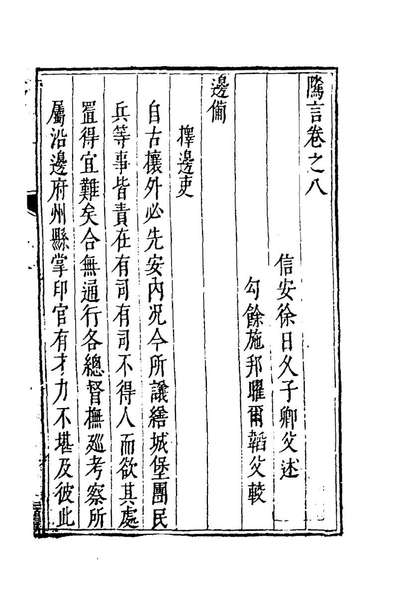 隲言卷之八
信安徐日久子卿父述
勾餘施邦曜爾韜父較
邊備
擇邊吏
自古攘外必先安內况今所議繕城堡團民
兵等事皆責在有司有司不得人而欲其處
置得宜難矣合無通行各總督撫廵考察所
屬沿邊府州縣掌印官有才力不堪及彼此